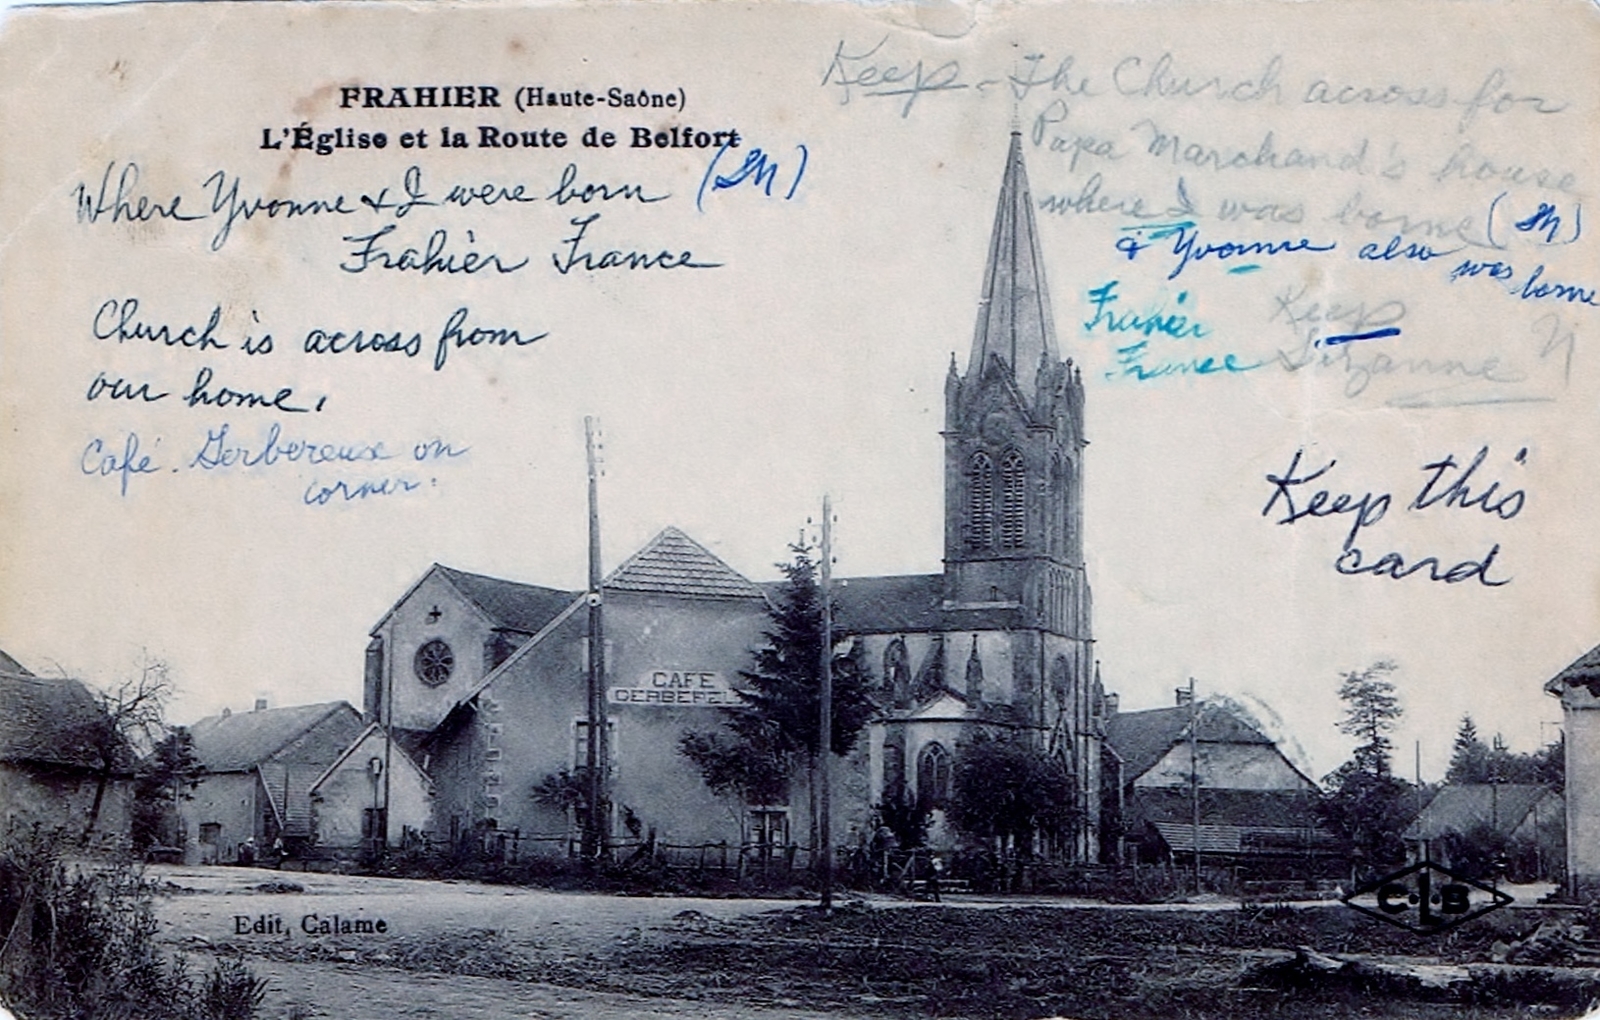 FRAHIER (Haute-Saône)
L'Église et la Route de Belfort
Where Yvonne & I were born (SM)
Frahier France
Church is across from
our home.
Café. Gerbereux on
corner.
Keep - The Church across for
Papa Marchand's house
where I was borne (SM)
& Yvonne also was borne
Frahier
France
Keep
Suzanne M
Keep this
card
CAFE
Edit, Calame
C.L.B